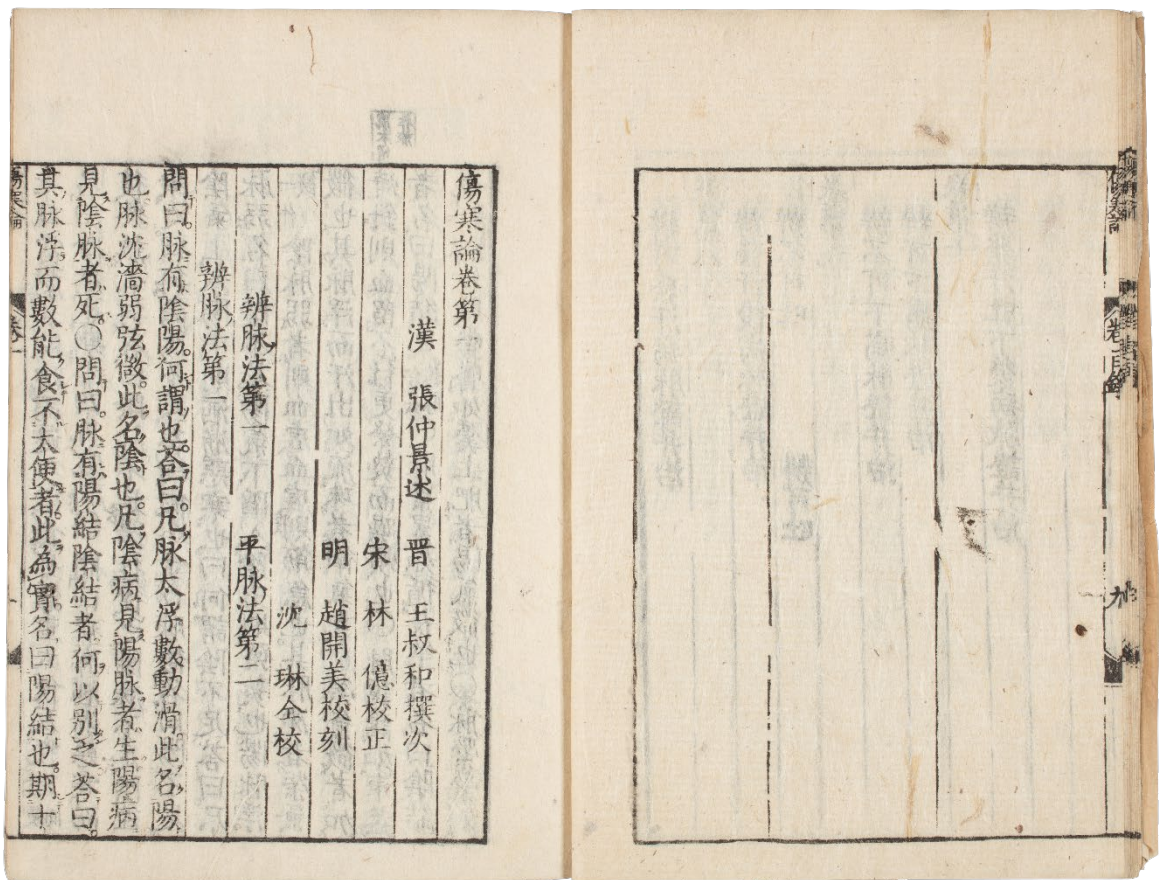 傷寒論
卷一目錄
九
傷寒論卷第
漢 張仲景述 晋 王叔和撰次
宋 林 億校正
明 趙開美校刻
沈 琳仝校
辨脉法第一 平脉法第二
辨脉法第一
問曰脉有陰陽何謂也荅曰凡脉大浮數動滑此名陽
也脉沈濇弱弦微此名陰也凡陰病見陽脉者生陽病
見陰脉者死○問曰脉有陽結陰結者何以別之荅曰
其脉浮而數能食不大便者此為實名曰陽結也期十
傷寒論
卷一